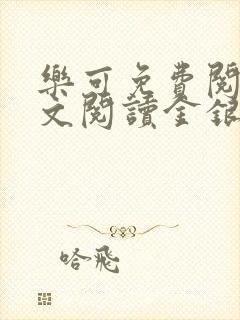 樂可免費閱
文閱讀金銀
哈飛